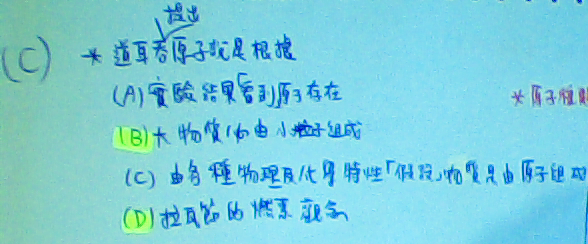 提出
(C) * 道耳吞原子說是根據
(A) 實驗結果「看到」原子存在
(B) 大物質必由小粒子組成
(C) 由各種物理及化學特性「假設」物質是由原子組成
(D) 拉瓦節的燃素觀念
* 原子